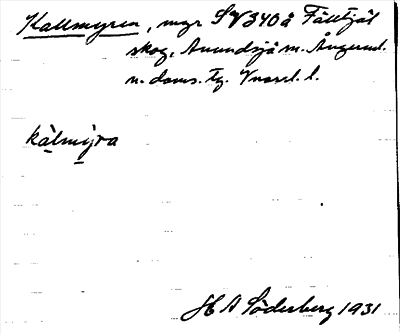 Kallmyren, myr SV 340 å Fälltjäl
skog, Anundsjö sn. Ångerml.
n. doms. tg. Vnorrl. l.
kàlmy̱ra
H A Söderberg 1931